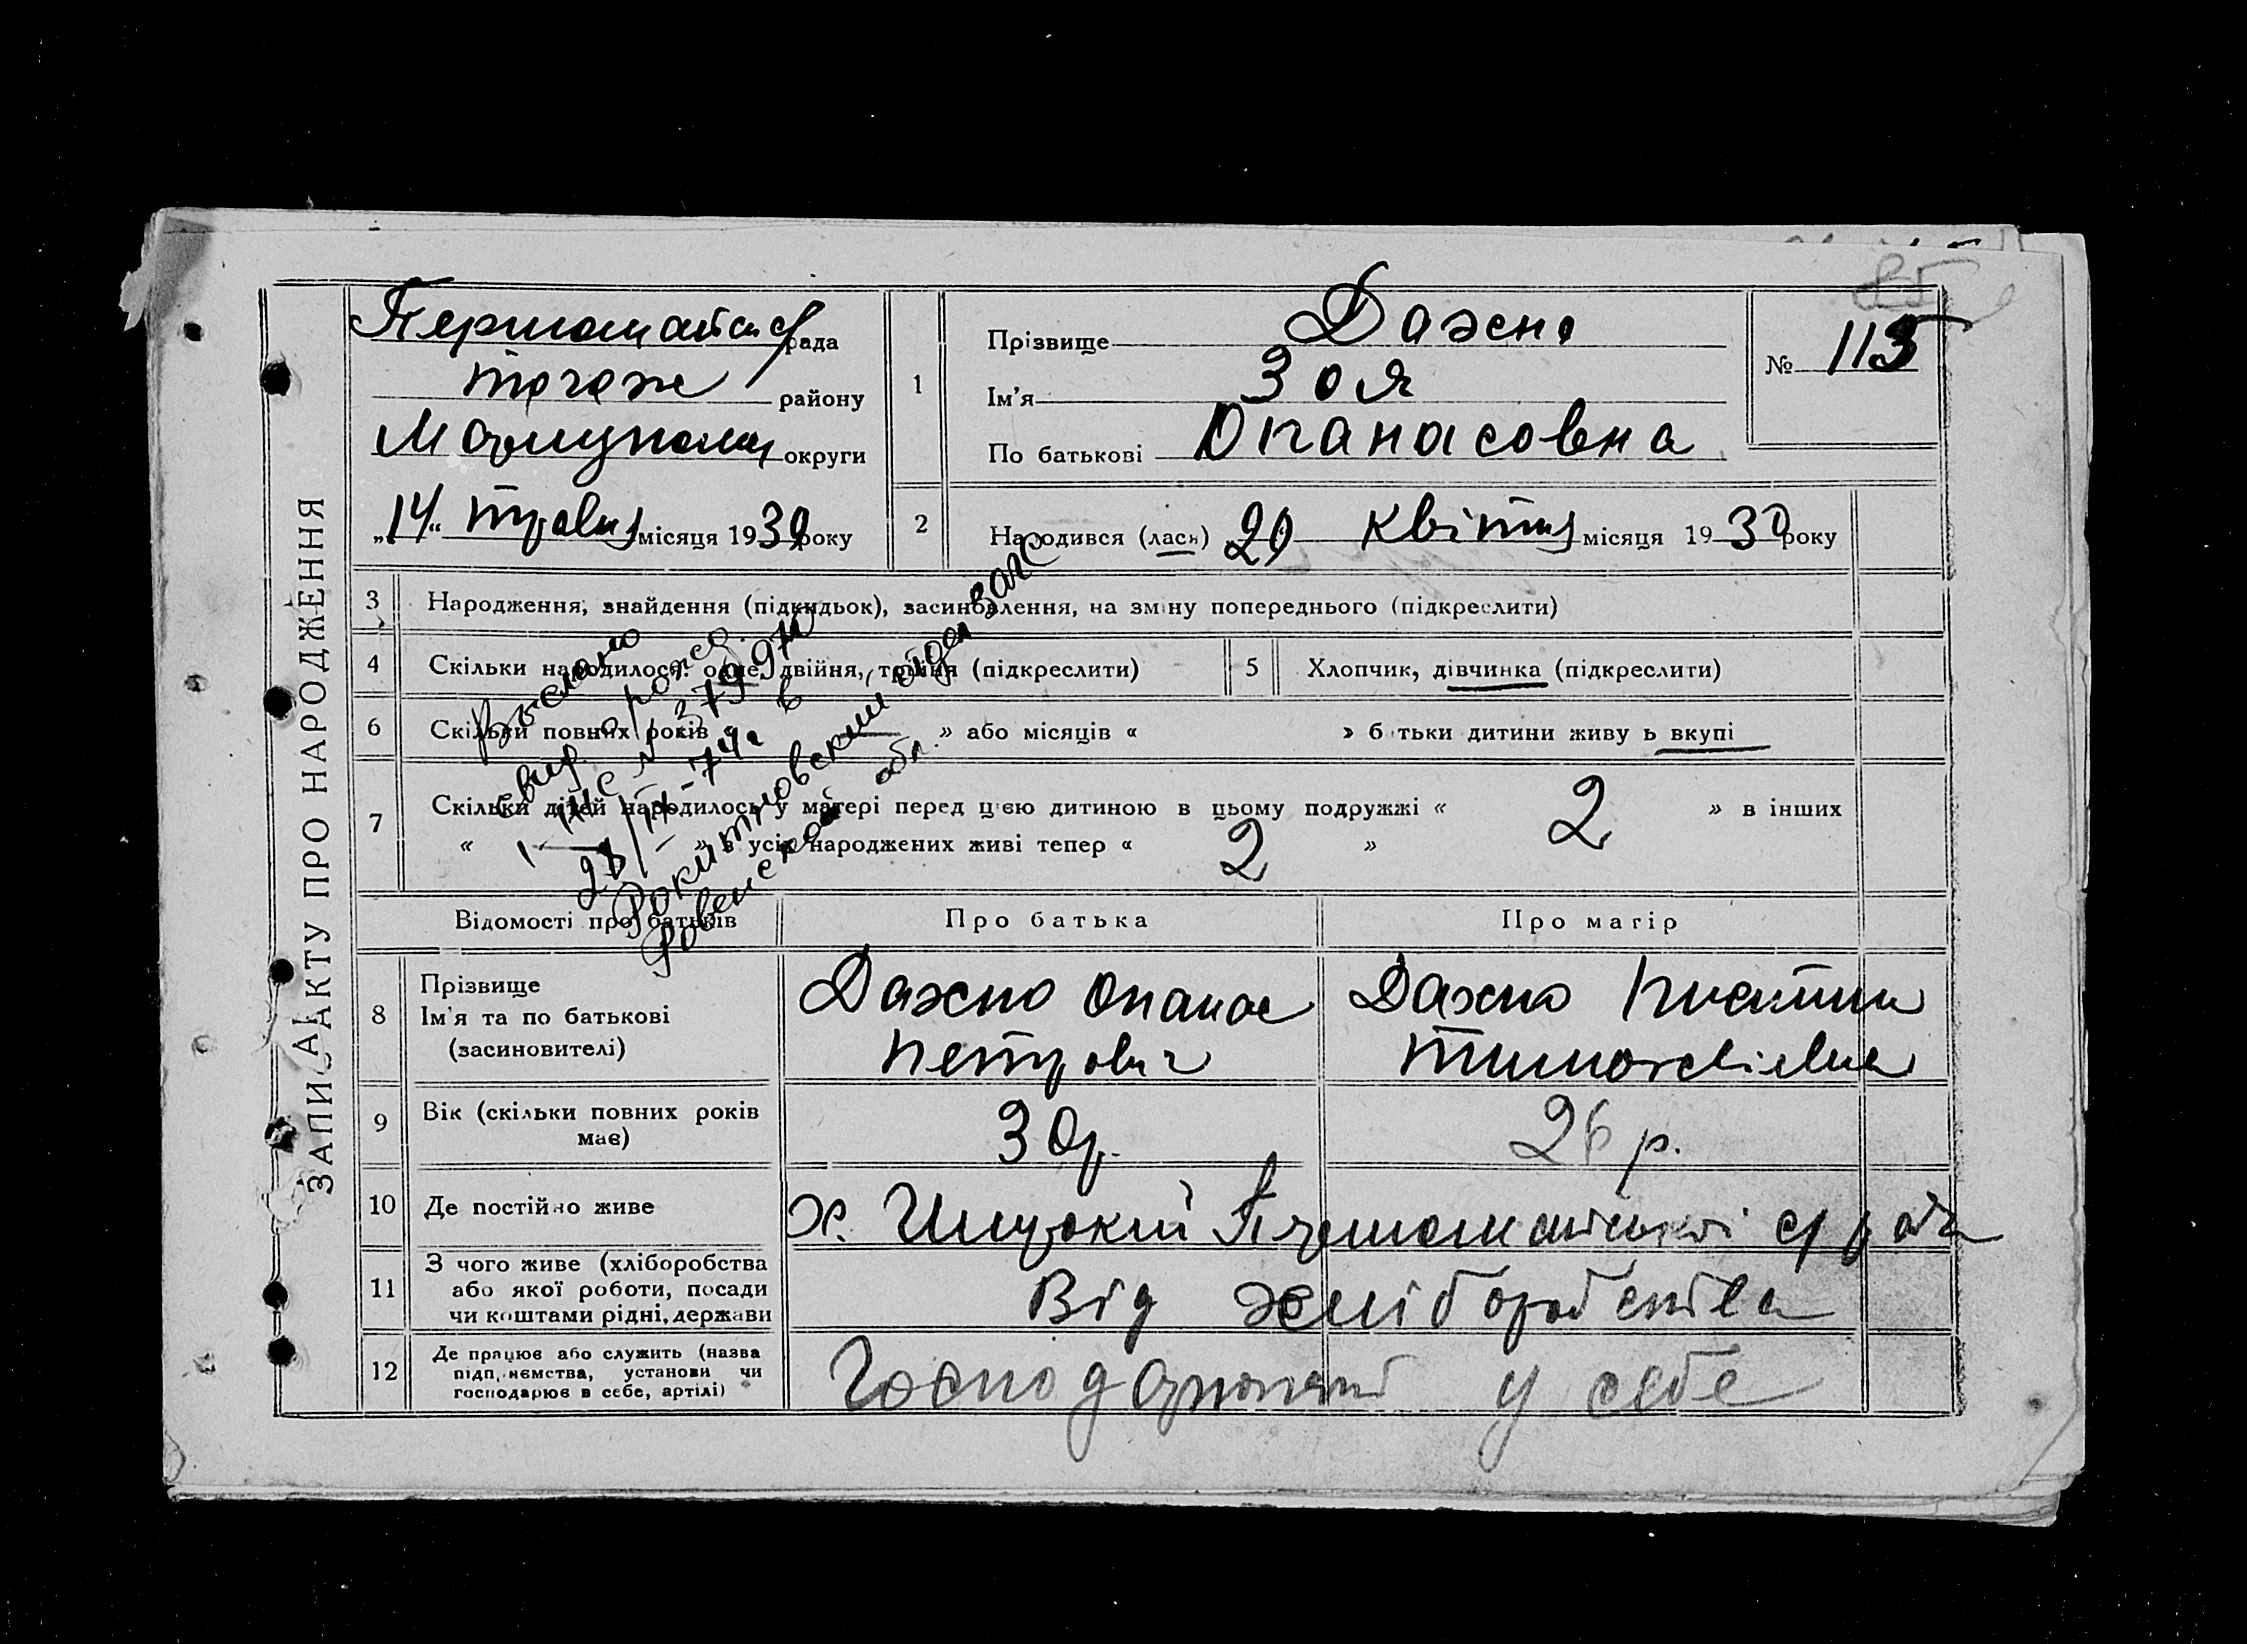 85
ЗАПИС АКТУ ПРО НАРОДЖЕННЯ
Першомайськ рада
тогож району
Маріупольск округи
„14“ травня місяця 1930 року
1
Прізвище Дахно
Ім'я Зоя
По батькові Опанасовна
№ 115
2 Народився (лася) 20 квітня місяця 1930 року
3 Народження, знайдення (підкидьок), засиновлення, на зміну попереднього (підкреслити)
4 Скільки народилося: одне, двійня, трійня (підкреслити)
5 Хлопчик, дівчинка (підкреслити)
6 Скільки повних років — » або місяців « » б тьки дитини живу ь вкупі
7 Скільки дітей народилось у матері перед цією дитиною в цьому подружжі « 2 » в інших
« — » з усіх народжених живі тепер « 2 »
Выслано
свид. о рожд.
379970
28/IX-74г в
Рокитновский отдел загс
Ровенской обл.
Відомості про батьків Про батька Про матір
8 Прізвище
Ім'я та по батькові
(засиновителі)
Дахно Опанас
Петрович
Дахно
Тимофеівна
9 Вік (скільки повних років
має)
30р. 26 р.
10 Де постійно живе
х. Широкий Першомайської с/ради
11 З чого живе (хліборобства
або якої роботи, посади
чи коштами рідні, держави
Від хліборобства
12 Де працює або служить (назва
підприємства, установи чи
господарює в себе, артілі)
Господарюють у себе